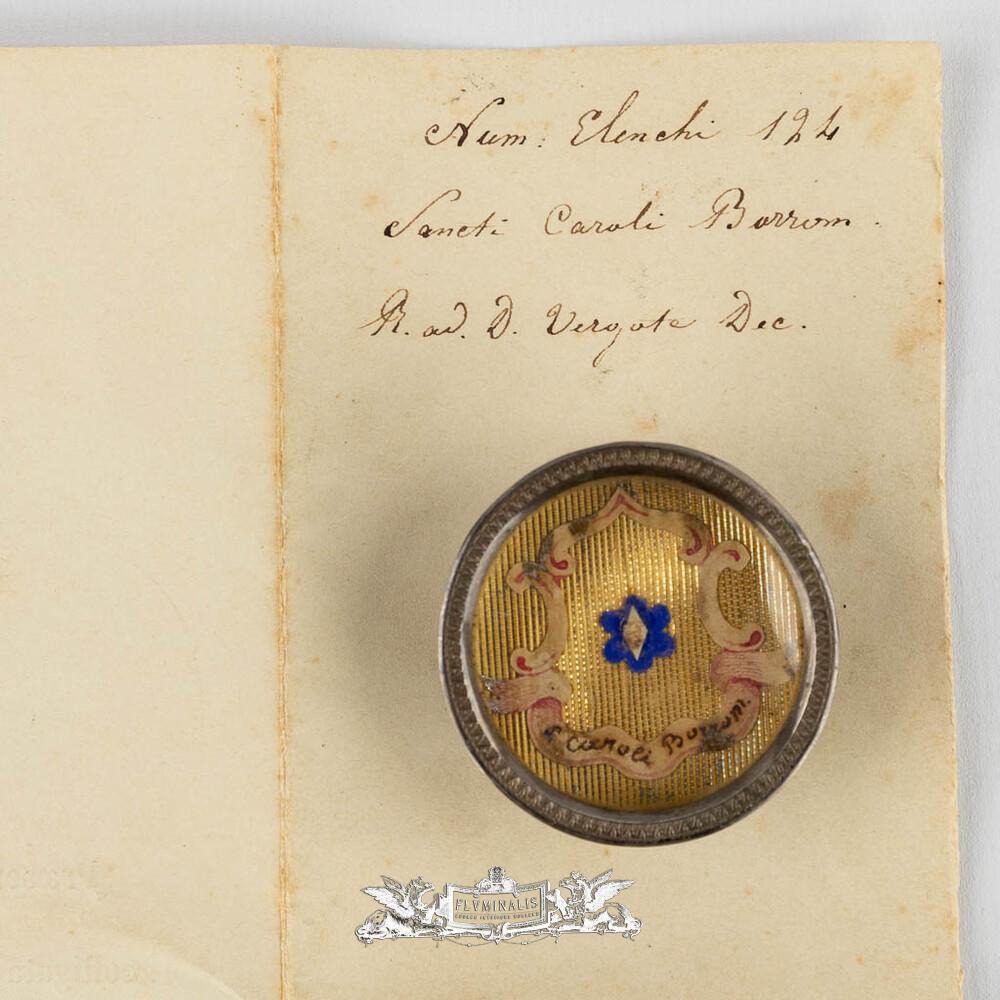 Num: Elenchi 124
Sancti Caroli Borrom.
R. ad. D. Vergote Dec.
S. Caroli Borrom.
FLVMINALIS